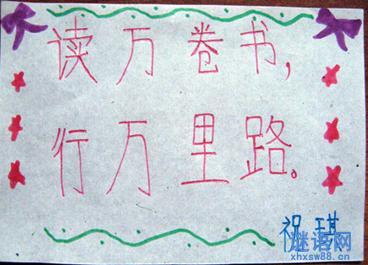 读万卷书，
行万里路。
祝琪
谜语网
xhxsw88.cn